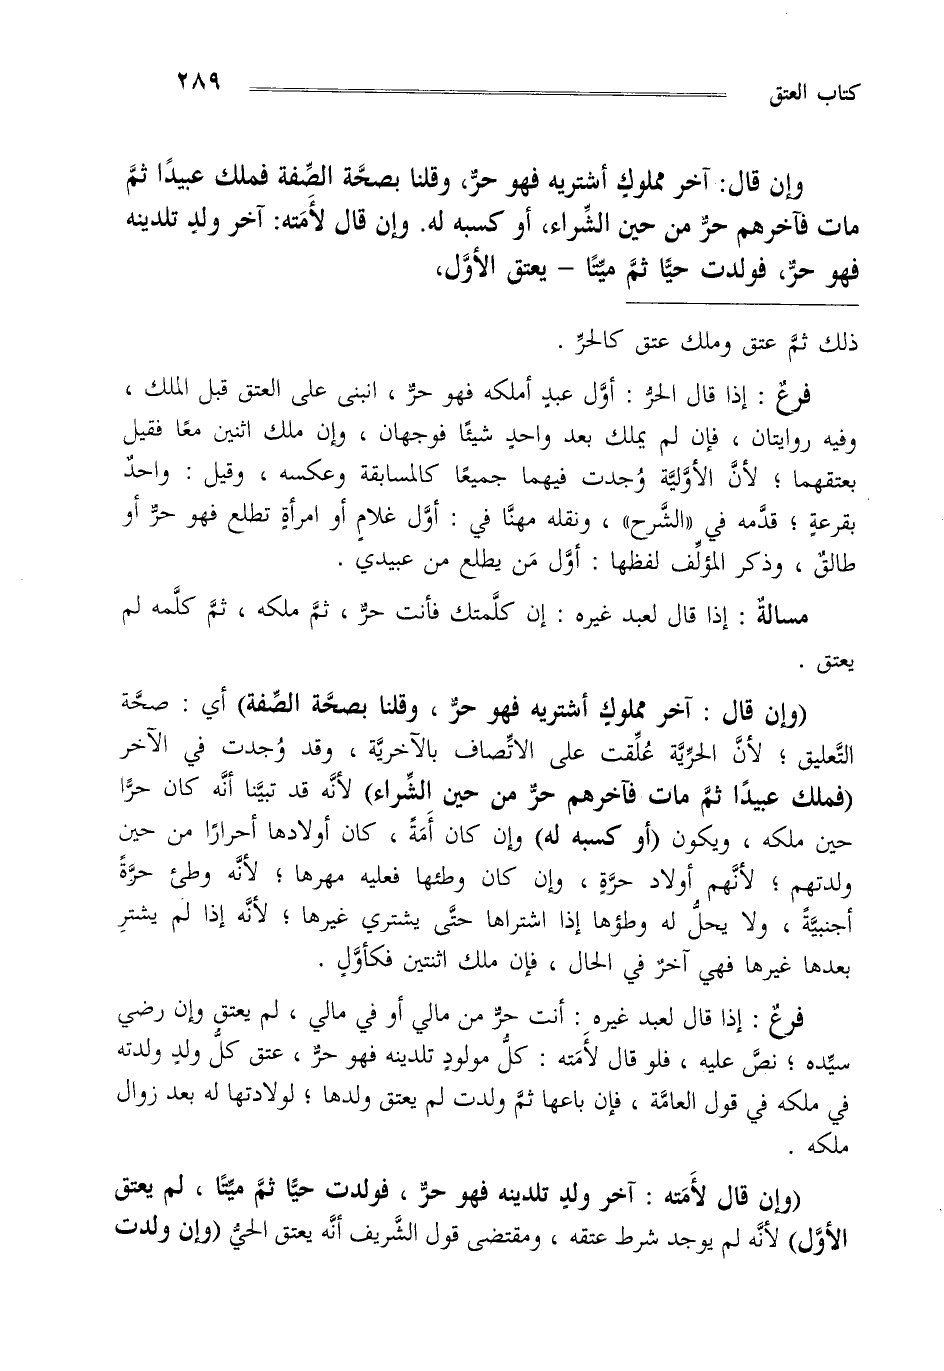 كتاب العتق ٢٨٩
وإن قال: آخر مملوكٍ أشتريه فهو حرٌّ، وقلنا بصحَّة الصِّفة فملك عبيدًا ثمَّ
مات فآخرهم حرٌّ من حين الشِّراء، أو كسبه له. وإن قال لأَمَته: آخر ولدٍ تلدينه
فهو حرٌّ، فولدت حيًّا ثمَّ ميِّتًا – يعتق الأوَّل،
ذلك ثمَّ عتق وملك عتق كالحرِّ .
فرعٌ : إذا قال الحرُّ : أوَّل عبدٍ أملكه فهو حرٌّ ، انبنى على العتق قبل الملك ،
وفيه روايتان ، فإن لم يملك بعد واحدٍ شيئًا فوجهان ، وإن ملك اثنين معًا فقيل
بعتقهما ؛ لأنَّ الأوَّليَّة وُجدت فيهما جميعًا كالمسابقة وعكسه ، وقيل : واحدٌ
بقرعةٍ ؛ قدَّمه في «الشَّرح» ، ونقله مهنَّا في : أوَّل غلامٍ أو امرأةٍ تطلع فهو حرٌّ أو
طالقٌ ، وذكر المؤلِّف لفظها : أوَّل مَن يطلع من عبيدي .
مسالةٌ : إذا قال لعبد غيره : إن كلَّمتك فأنت حرٌّ ، ثمَّ ملكه ، ثمَّ كلَّمه لم
يعتق .
(وإن قال : آخر مملوكٍ أشتريه فهو حرٌّ ، وقلنا بصحَّة الصِّفة) أي : صحَّة
التَّعليق ؛ لأنَّ الحرِّيَّة عُلِّقت على الاتِّصاف بالآخريَّة ، وقد وُجدت في الآخر
(فملك عبيدًا ثمَّ مات فآخرهم حرٌّ من حين الشِّراء) لأنَّه قد تبيَّنا أنَّه كان حرًّا
حين ملكه ، ويكون (أو كسبه له) وإن كان أَمَةً ، كان أولادها أحرارًا من حين
ولدتهم ؛ لأنَّهم أولاد حرَّةٍ ، وإن كان وطئها فعليه مهرها ؛ لأنَّه وطئ حرَّةً
أجنبيَّةً ، ولا يحلُّ له وطؤها إذا اشتراها حتَّى يشتري غيرها ؛ لأنَّه إذا لم يشترِ
بعدها غيرها فهي آخرٌ في الحال ، فإن ملك اثنتين فكأوَّلٍ .
فرعٌ : إذا قال لعبد غيره : أنت حرٌّ من مالي أو في مالي ، لم يعتق وإن رضي
سيِّده ؛ نصَّ عليه ، فلو قال لأَمَته : كلُّ مولودٍ تلدينه فهو حرٌّ ، عتق كلُّ ولدٍ ولدته
في ملكه في قول العامَّة ، فإن باعها ثمَّ ولدت لم يعتق ولدها ؛ لولادتها له بعد زوال
ملكه .
(وإن قال لأَمَته : آخر ولدٍ تلدينه فهو حرٌّ ، فولدت حيًّا ثمَّ ميِّتًا ، لم يعتق
الأوَّل) لأنَّه لم يوجد شرط عتقه ، ومقتضى قول الشَّريف أنَّه يعتق الحيُّ (وإن ولدت